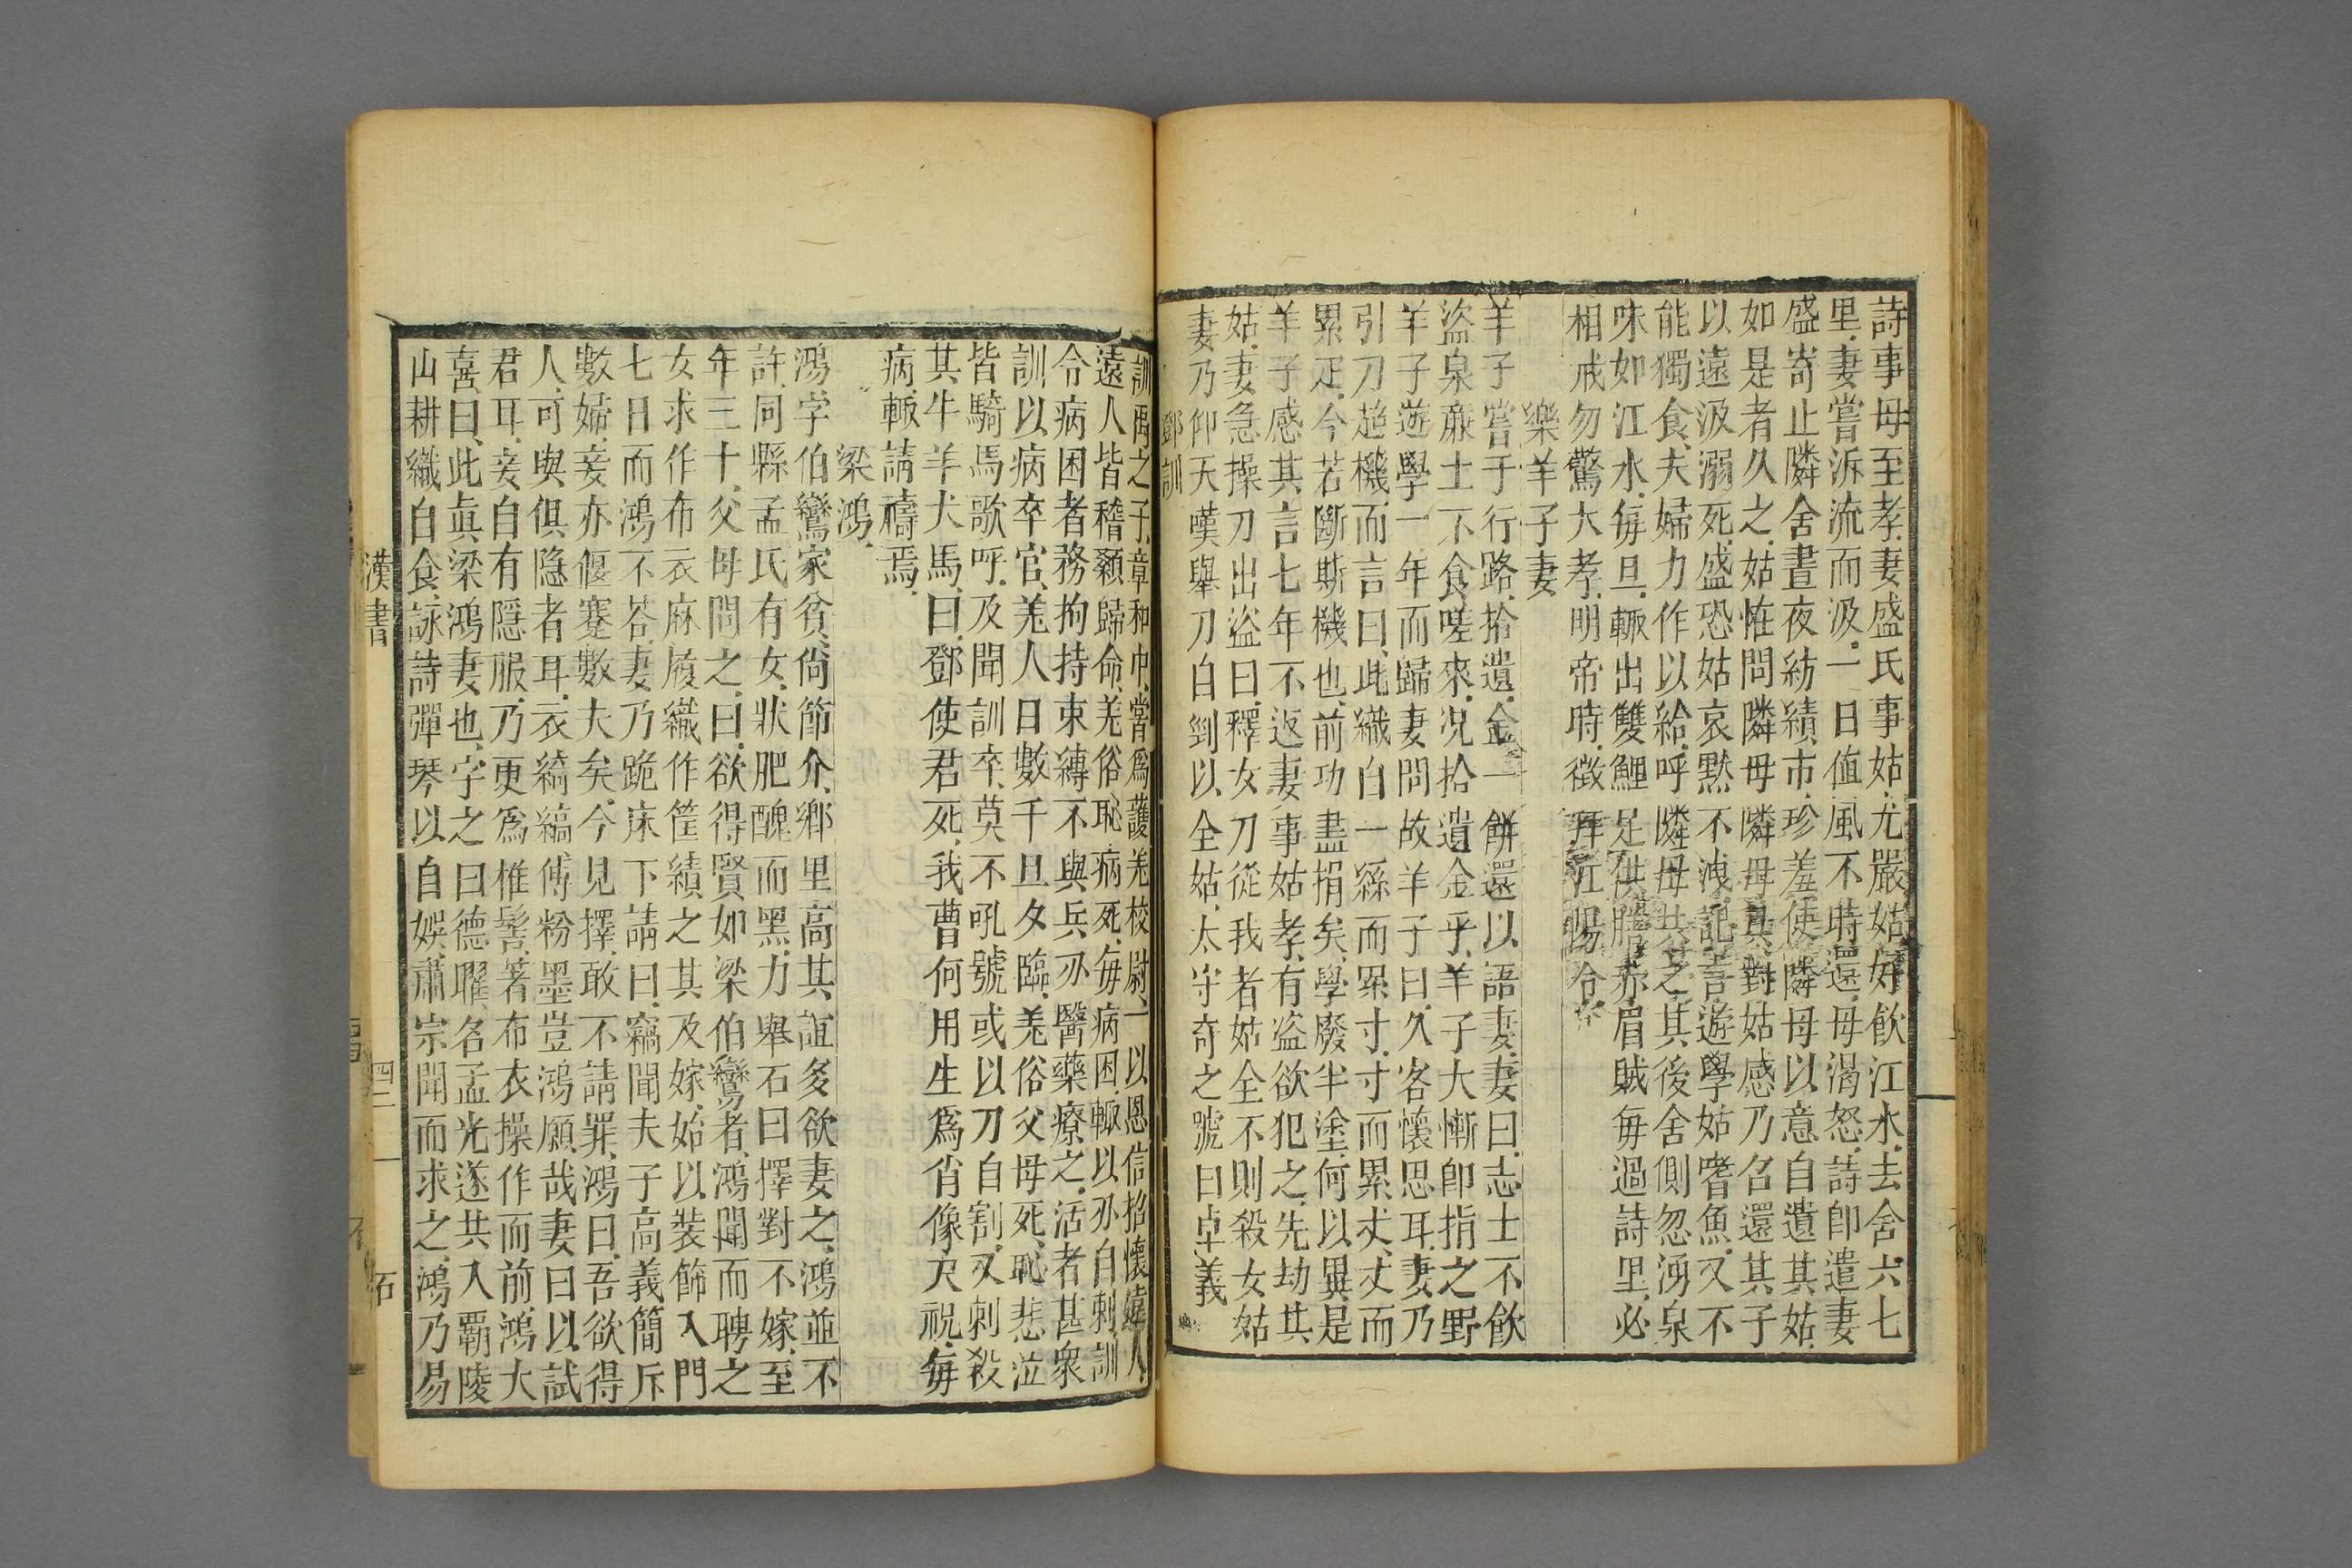 詩事母至孝妻盛氏事姑尤嚴姑好飲江水去舍六七
里妻嘗泝流而汲一日值風不時還母渴怒詩卽遣妻
盛寄止隣舍晝夜紡績市珍羞使隣母以意自遺其姑
如是者久之姑恠問隣母隣母具對姑感乃召還其子
以遠汲溺死盛恐姑哀黙不洩託言遊學姑嗜魚又不
能獨食夫婦力作以給呼隣母共之其後舍側忽湧泉
味如江水每旦輙出雙鯉足供膳赤眉賊每過詩里必
相戒勿驚大孝明帝時徵拜江陽令
樂羊子妻
羊子嘗于行路拾遺金一餅還以語妻妻曰志士不飲
盜泉㢘士不食嗟來况拾遺金乎羊子大慚卽指之野
羊子遊學一年而歸妻問故羊子曰久客懷思耳妻乃
引刀趨機而言曰此織自一絲而累寸寸而累丈丈而
累疋今若斷斯機也前功盡捐矣學廢半塗何以異是
羊子感其言七年不返妻事姑孝有盜欲犯之先劫其
姑妻急操刀出盜曰釋女刀從我者姑全不則殺女姑
妻乃仰天嘆舉刀自剄以全姑太守奇之號曰卓義
鄧訓
訓禹之子章和中嘗爲護羌校尉一以恩信招懷遠人
遠人皆稽顙歸命羌俗恥病死每病困輙以刃自刺訓
令病困者務拘持束縛不與兵刃醫藥療之活者甚衆
訓以病卒官羌人日數千旦夕臨羌俗父母死恥悲泣
皆騎馬歌呼及聞訓卒莫不吼號或以刀自割又刺殺
其牛羊犬馬曰鄧使君死我曹何用生爲肖像尺祝每
病輙請禱焉
梁鴻
鴻字伯鸞家貧尚節介鄉里高其誼多欲妻之鴻並不
許同縣孟氏有女狀肥醜而黑力舉石曰擇對不嫁至
年三十父母問之曰欲得賢如梁伯鸞者鴻聞而聘之
女求作布衣麻履織作筐績之其及嫁始以裝飾入門
七日而鴻不荅妻乃跪床下請曰竊聞夫子高義簡斥
數婦妾亦偃蹇數夫矣今見擇敢不請罪鴻曰吾欲得
人可與俱隐者耳衣綺縞傅粉墨豈鴻願哉妻曰以試
君耳妾自有隱服乃更爲椎髻著布衣操作而前鴻大
喜曰此眞梁鴻妻也字之曰德曜名孟光遂共入霸陵
山耕織自食詠詩彈琴以自娛肅宗聞而求之鴻乃易
漢書 四三